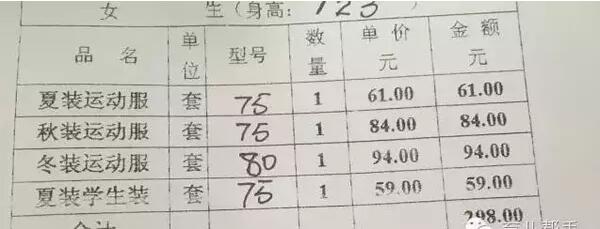 女 生(身高: 123 )
品名 单位 型号 数量 单价元 金额元
夏装运动服 套 75 1 61.00 61.00
秋装运动服 套 75 1 84.00 84.00
冬装运动服 套 80 1 94.00 94.00
夏装学生装 套 75 1 59.00 59.00
合计 298.00